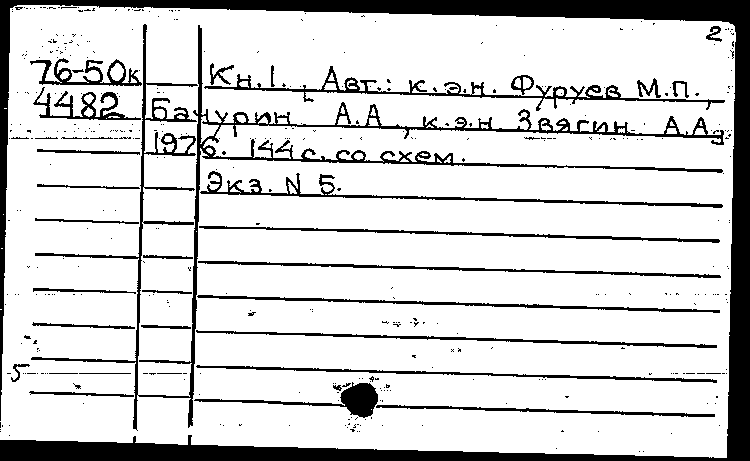 2
76-50к Кн.1. [Авт.: к.э.н. Фуруев М.П.,
4482 Бачурин А.А., к.э.н Звягин А.А.
1976. 144 с. со схем.
Экз. N 5.
5